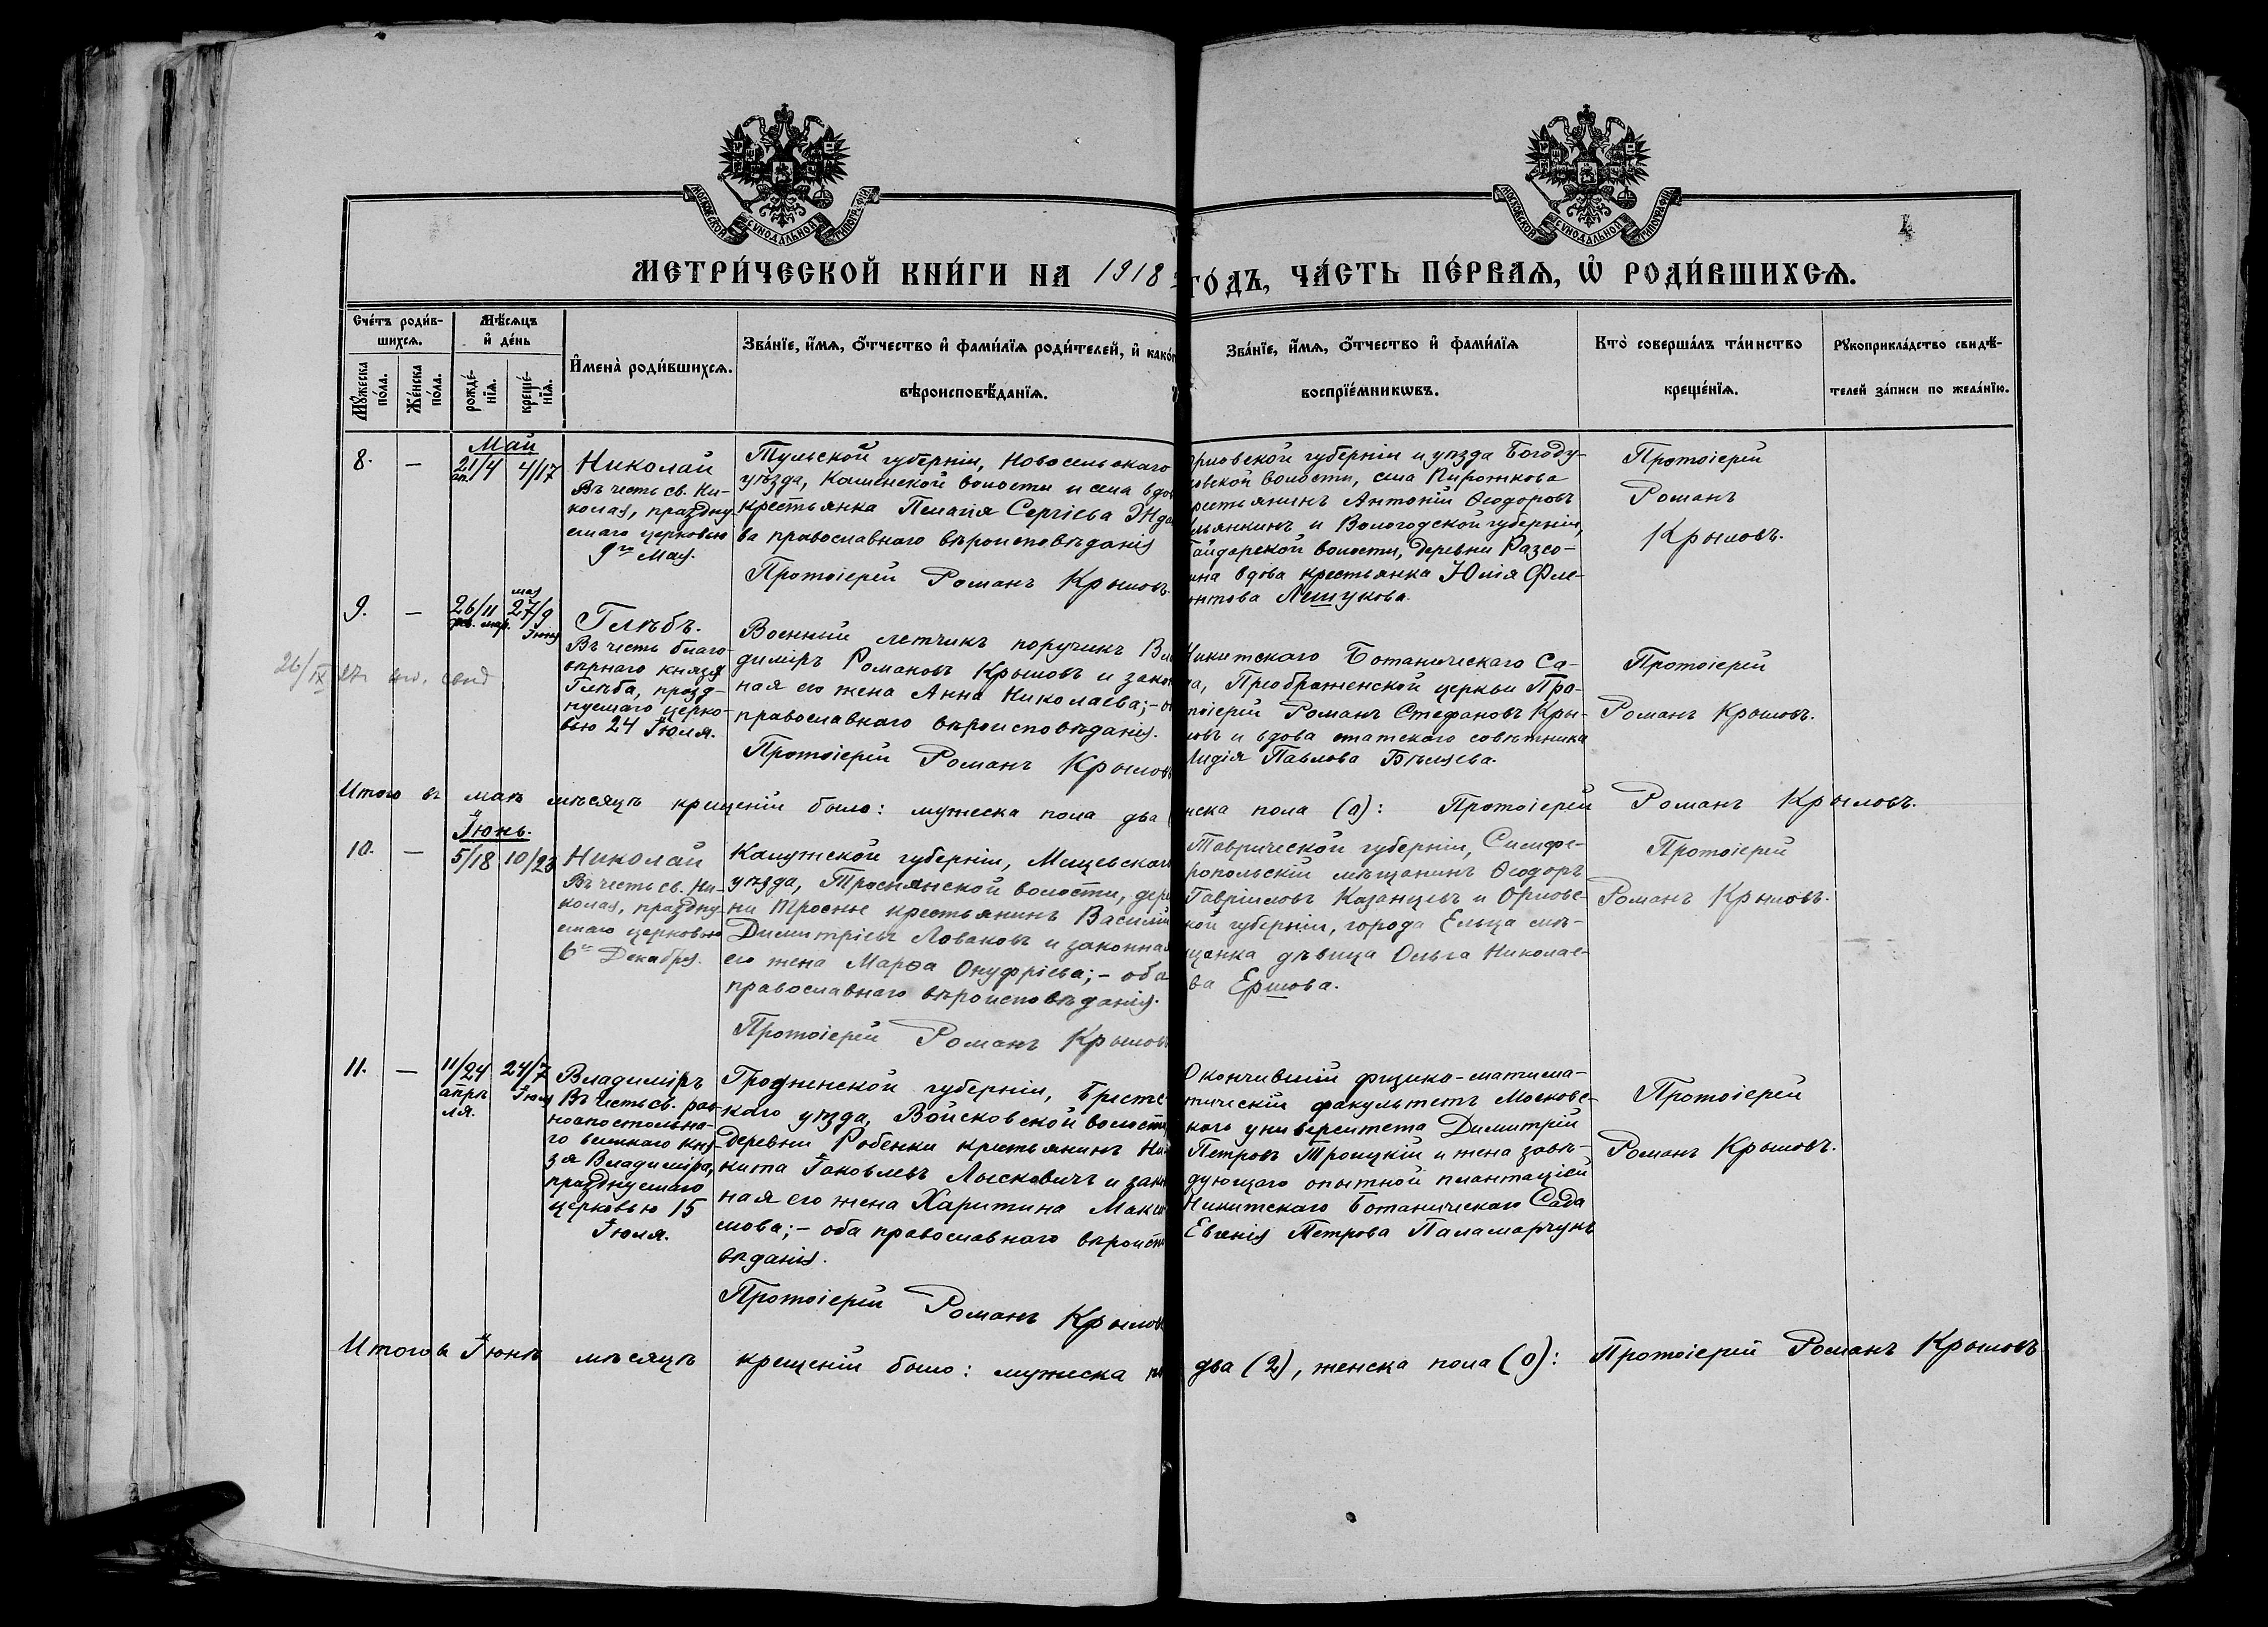 МОСКОВСКОЙ СУНОДАЛЬНОЙ ТИПОГРАФІИ
МОСКОВСКОЙ СУНОДАЛЬНОЙ ТИПОГРАФІИ
МЕТРИ́ЧЕСКОЙ КНИ́ГИ НА 1918 ГО́ДЪ, ЧА́СТЬ ПЕ́РВАЯ, Ѡ РОДИ́ВШИХСЯ.
Сче́тъ роди́в-
шихся.
Мѣ́сяцъ
и де́нь
Мꙋжеска по́ла.
Же́нска по́ла.
рожде́-
нїя.
креще́-
нїя.
Имена̀ роди́вшихся.
Зва́нїе, и́мя, ѻ́тчество и фами́лїя роди́телей, и како́г
вѣроисповѣ́данїя.
Зва́нїе, и́мя, ѻ́тчество и фами́лїя
воспрїе́мникѡвъ.
Кто̀ соверша́лъ та́инство
креще́нїя.
Рꙋкоприкла́дство свидѣ́-
телей за́писи по жела́нїю.
Май
8. — 21/4 ап. 4/17
Николай
Въ честь св. Ни-
колая, праздну-
емаго церковью
9го Мая.
Тульской губерніи, Новосельскаго
уѣзда, Каменской волости и села вдов
крестьянка Пелагія Сергіева Жда
ва православнаго вѣроисповѣданія
Протоіерей Романъ Крыловъ.
рловской губерніи и уѣзда Богоду-
овской волости, села Пирожкова
рестьянинъ Антоній Ѳеодоровъ
льянкинъ и Вологодской губерніи,
айдарской волости, деревни Разсо-
ина вдова крестьянка Юлія Фле-
онтова Лешукова.
Протоіерей
Романъ
Крыловъ.
9. — 26/11 фев. мар. мая 27/9 Іюня
Глѣбъ.
Въ честь благо-
вѣрнаго князя
Глѣба, празд-
нуемаго церко-
вью 24 Іюля.
Военный летчикъ поручикъ Вла
диміръ Романовъ Крыловъ и закон
ная его жена Анна Николаева; – об
православнаго вѣроисповѣданія.
Протоіерей Романъ Крыловъ
Никитскаго Ботаническаго Са-
да, Преображенской церкви Про-
тоіерей Романъ Стефановъ Кры-
ловъ и вдова статскаго совѣтника
Лидія Павлова Бѣляева.
Протоіерей
Романъ Крыловъ.
26/IX
Итого въ маѣ мѣсяцѣ крещеній было: мужеска пола два нска пола (0): Протоіерей Романъ Крыловъ.
Іюнь.
10. — 5/18 10/23
Николай
Въ честь св. Ни-
колая, праздну-
емаго церковью
6го Декабря.
Калужской губерніи, Мещевскаго
уѣзда, Троснянской волости, дерев
ни Тросны крестьянинъ Василій
Димитріевъ Ловаковъ и законная
его жена Марѳа Онуфріева; – оба
православнаго вѣроисповѣданія.
Протоіерей Романъ Крыловъ
Таврической губерніи, Симфе-
ропольскій мѣщанинъ Ѳеодоръ
Гавріиловъ Казанцевъ и Орловс-
кой губерніи, города Ельца мѣ-
щанка дѣвица Ольга Николае-
ва Ершова.
Протоіерей
Романъ Крыловъ.
11. — 11/24 апрѣля. 24/7 Іюля
Владиміръ
Въ честь св. рав-
ноапостольна-
го великаго кня-
зя Владиміра,
празднуемаго
церковью 15
Іюля.
Гродненской губерніи, Брестс
каго уѣзда, Войсковской волости,
деревни Робенки крестьянинъ Ни
кита Іаковлевъ Лысковичъ и закон
ная его жена Харитина Макси
мова; – оба православнаго вѣроиспо
вѣданія.
Протоіерей Романъ Крыловъ
Окончившій физико-матема-
тическій факультетъ Московс-
каго университета Димитрій
Петровъ Троицкій и жена завѣ-
дующаго опытной плантаціей
Никитскаго Ботаническаго Сада
Евгенія Петрова Паламарчукъ
Протоіерей
Романъ Крыловъ.
Итого въ Іюнѣ мѣсяцѣ крещеній было: мужеска по два (2), женска пола (0): Протоіерей Романъ Крыловъ